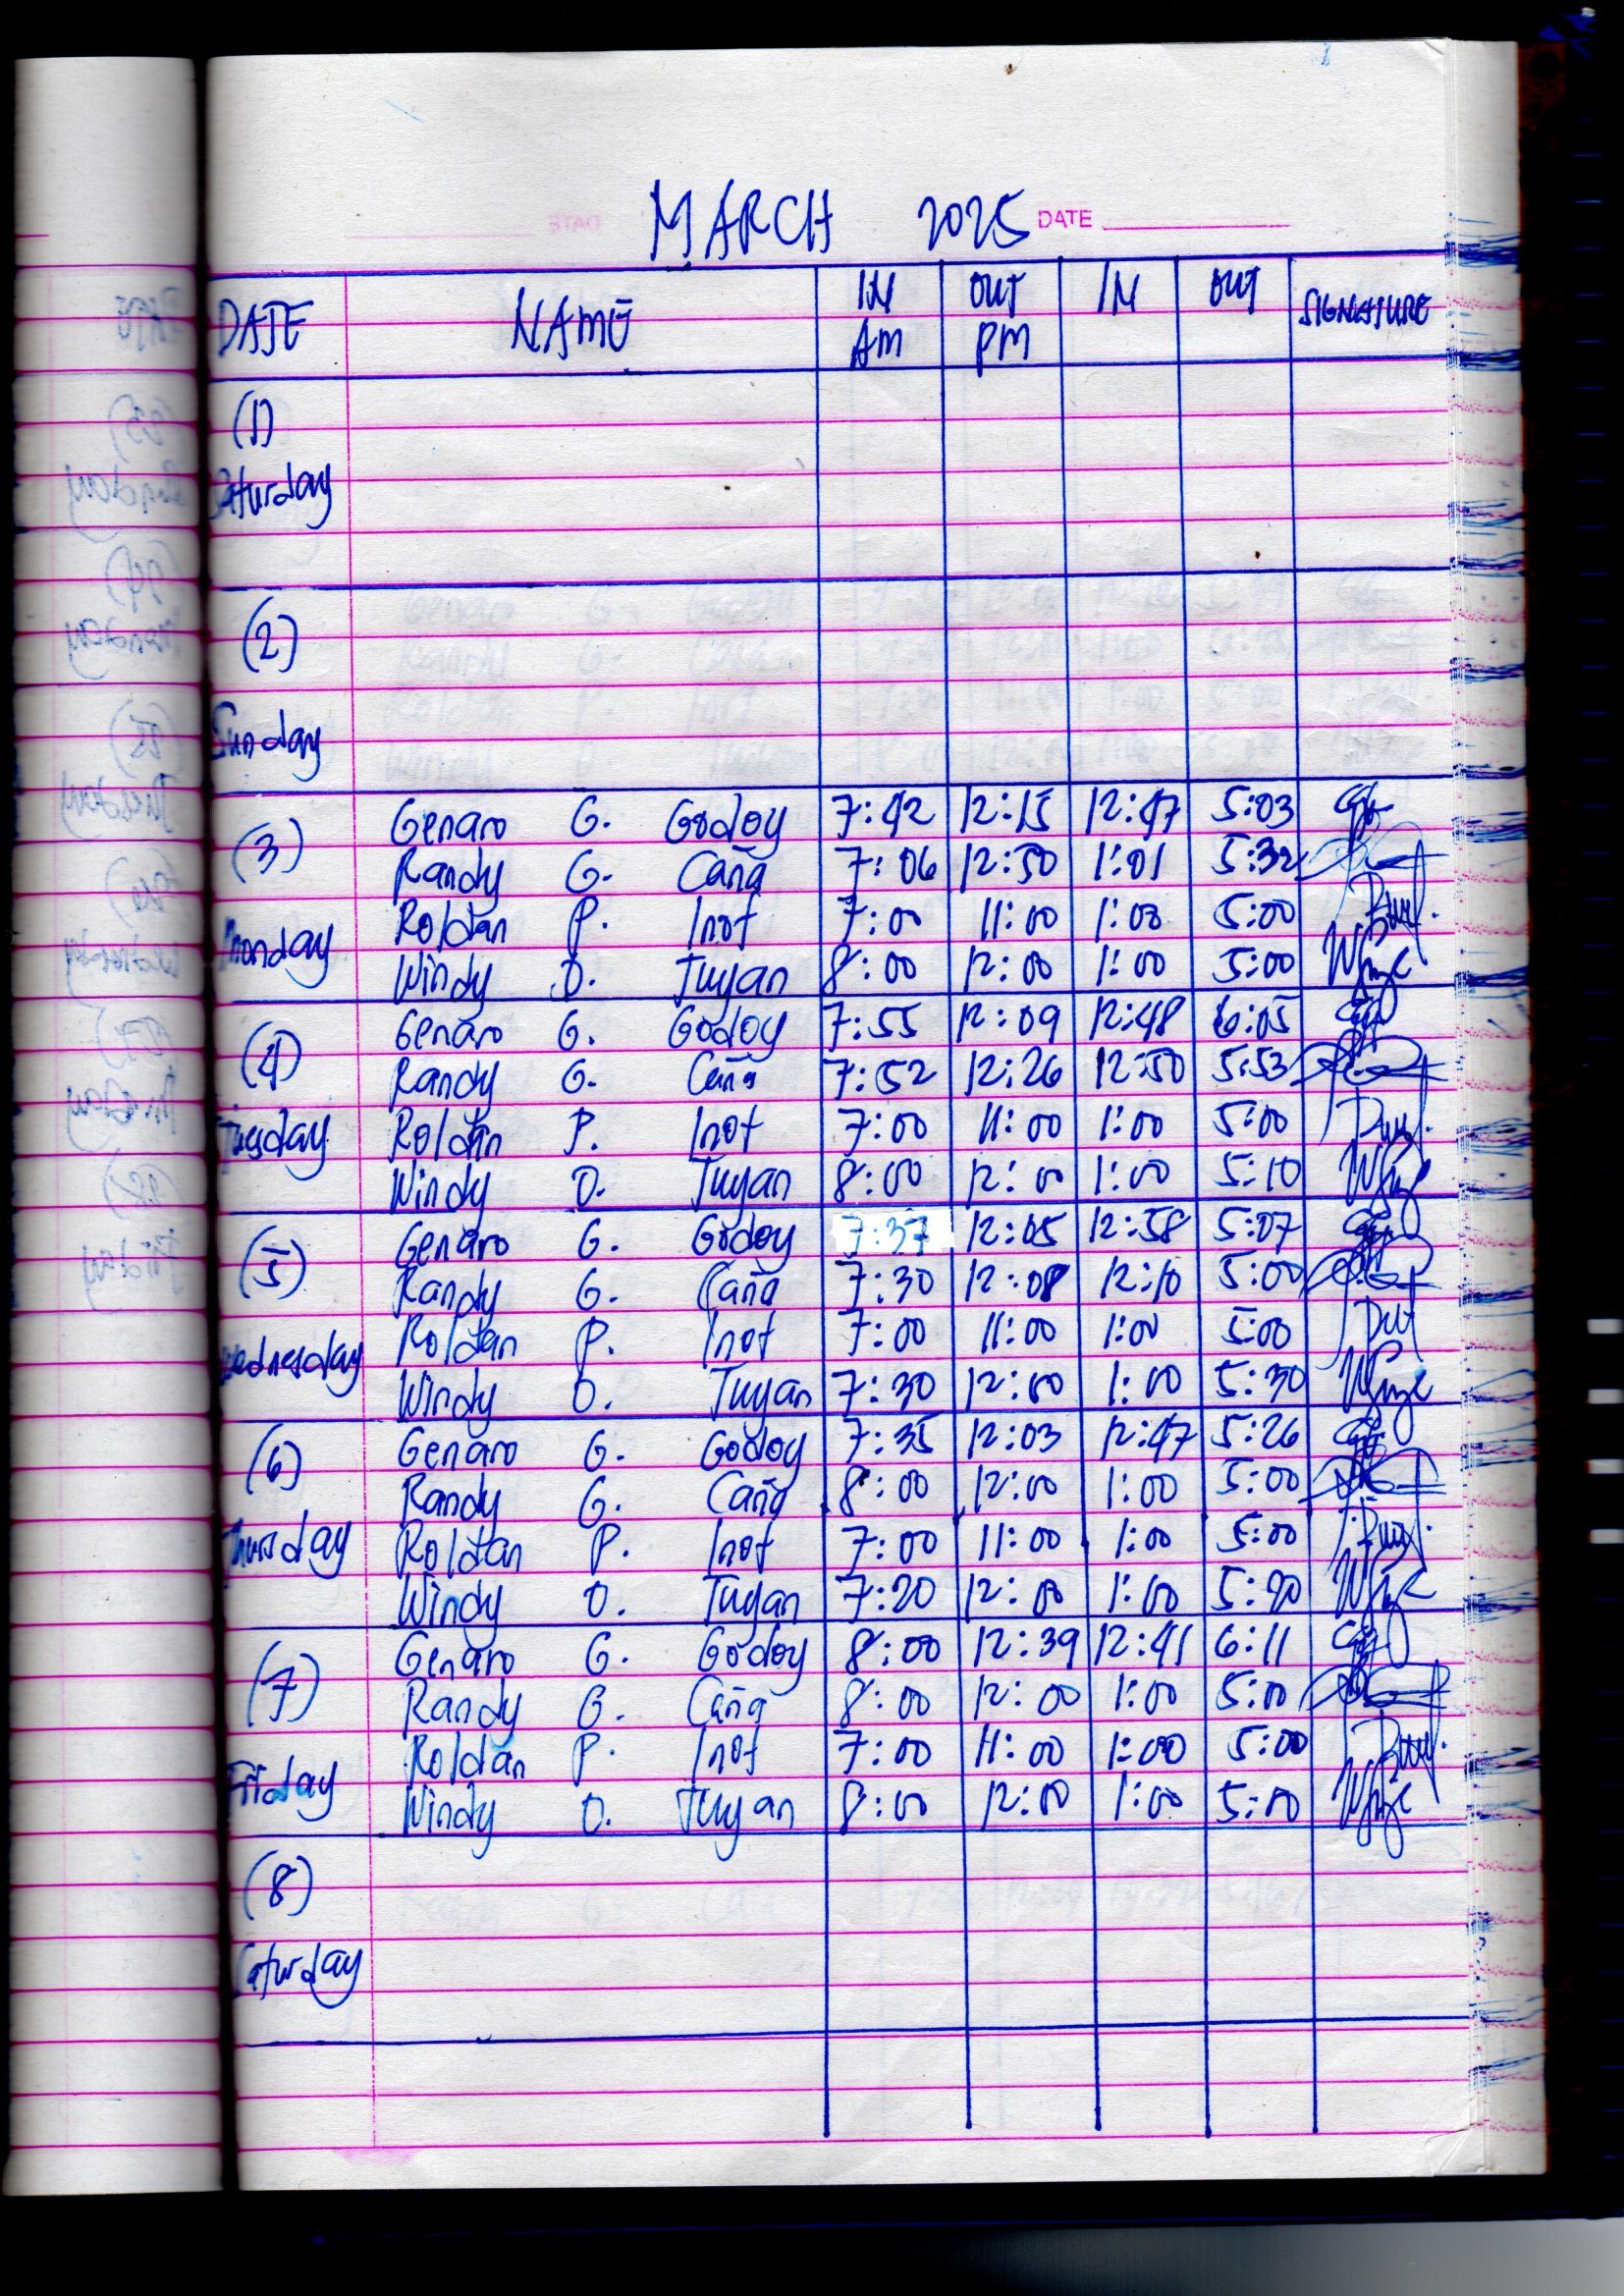 MARCH 2025 DATE
DATE NAME IN AM OUT PM IN OUT SIGNATURE
(1)
Saturday
(2)
Sunday
(3) Monday
Genaro G. Godoy 7:42 12:15 12:47 5:03
Randy G. Caña 7:06 12:50 1:01 5:32
Roldan P. Inot 7:00 11:00 1:00 5:00
Windy O. Tuyan 8:00 12:00 1:00 5:00
(4) Tuesday
Genaro G. Godoy 7:55 12:09 12:48 6:05
Randy G. Caña 7:52 12:26 12:50 5:53
Roldan P. Inot 7:00 11:00 1:00 5:00
Windy O. Tuyan 8:00 12:00 1:00 5:10
(5) Wednesday
Genaro G. Godoy 7:37 12:05 12:58 5:07
Randy G. Caña 7:30 12:08 12:10 5:00
Roldan P. Inot 7:00 11:00 1:00 5:00
Windy O. Tuyan 7:30 12:00 1:00 5:30
(6) Thursday
Genaro G. Godoy 7:35 12:03 12:47 5:26
Randy G. Caña 8:00 12:00 1:00 5:00
Roldan P. Inot 7:00 11:00 1:00 5:00
Windy O. Tuyan 7:20 12:00 1:00 5:20
(7) Friday
Genaro G. Godoy 8:00 12:39 12:41 6:11
Randy G. Caña 8:00 12:00 1:00 5:00
Roldan P. Inot 7:00 11:00 1:00 5:00
Windy O. Tuyan 8:00 12:00 1:00 5:00
(8)
Saturday